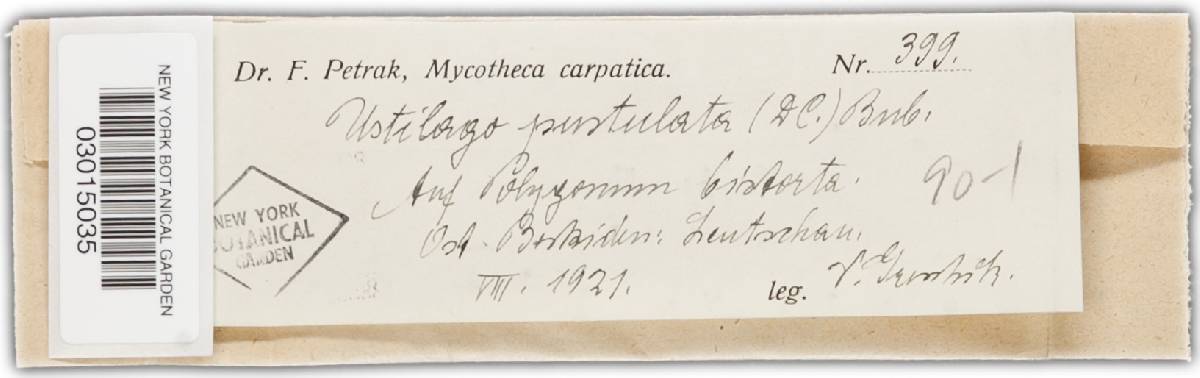 NEW YORK BOTANICAL GARDEN
03015035
Dr. F. Petrak, Mycotheca carpatica.
Nr. 399.
Ustilago pustulata (DC.) Bub.
Auf Polygonum bistorta.
Ost-Beskiden: Leutschau.
VIII. 1921.
leg. V.
90-1
NEW YORK
BOTANICAL
GARDEN